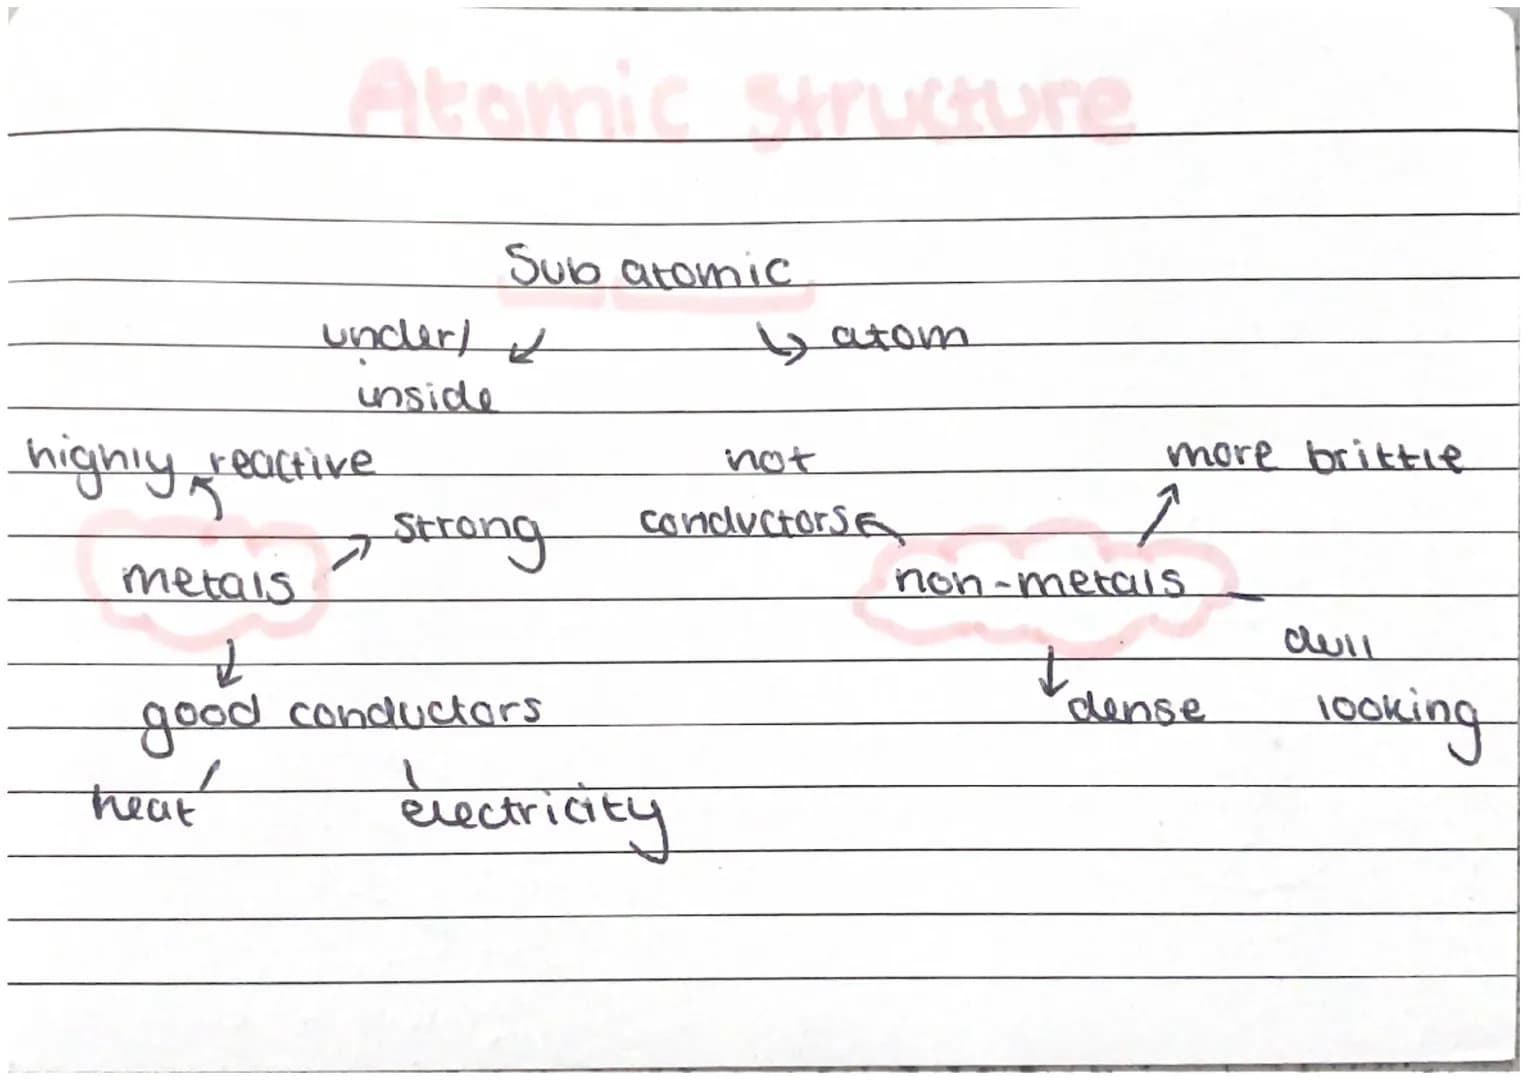 Atomic structure
Sub atomic
under/
inside
atom
highly reactive
not
more brittle
strong
conductors
metals
non-metals
dull
looking
good conductors
dense
heat
electricity